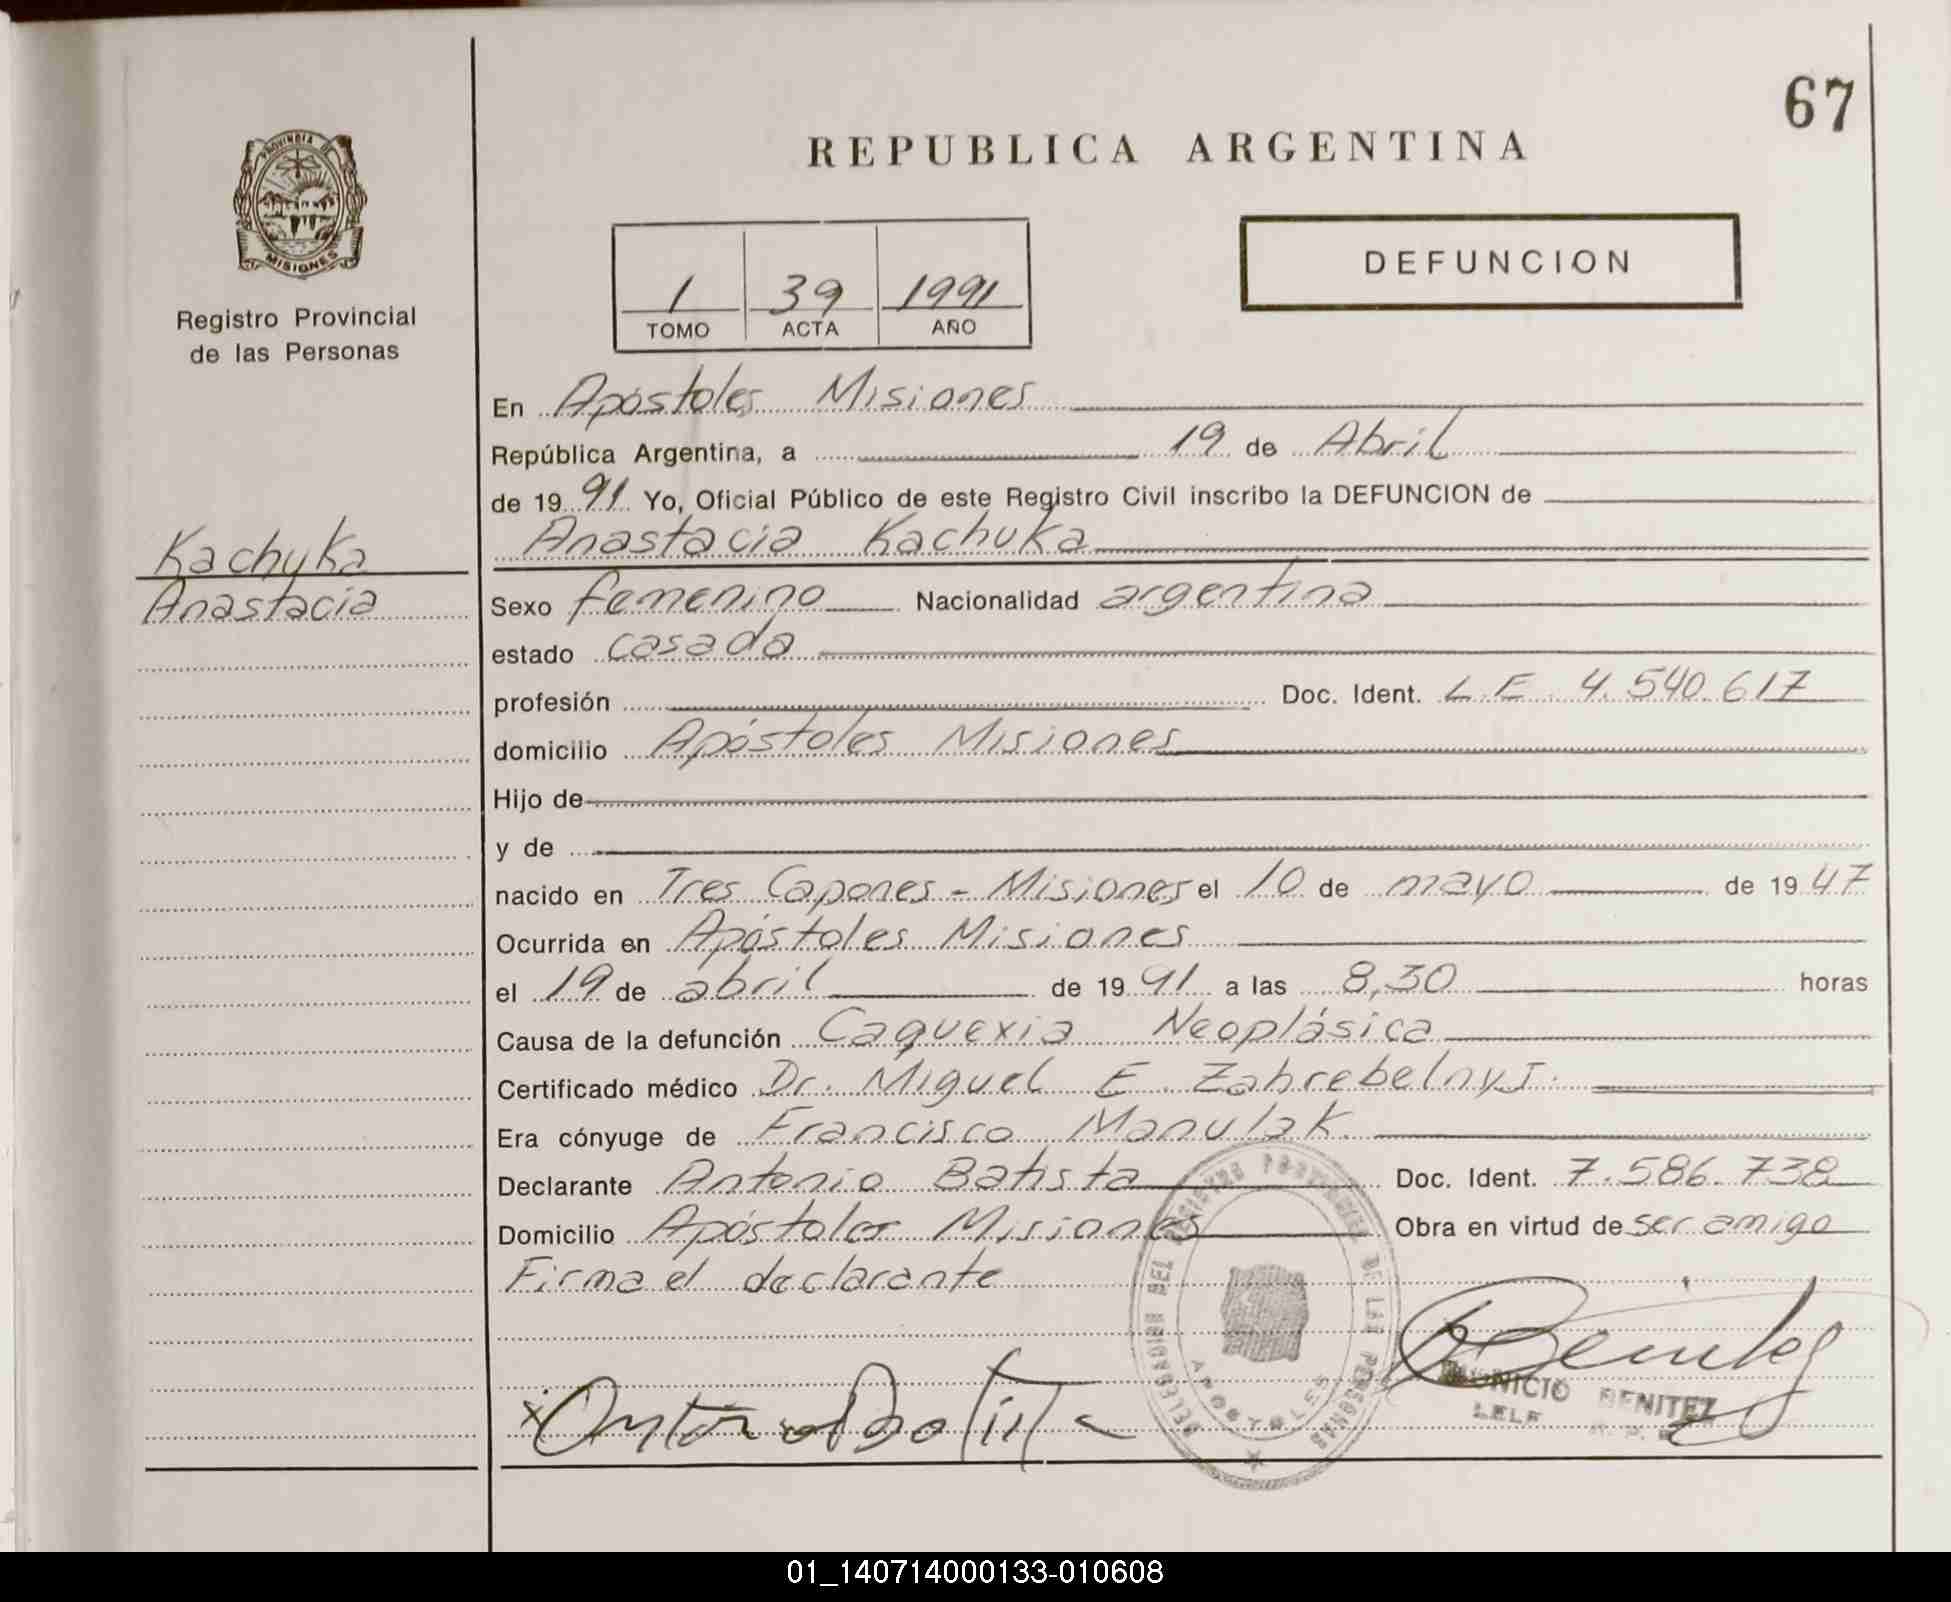 67
REPUBLICA ARGENTINA
PROVINCIA DE
MISIONES
Registro Provincial
de las Personas
DEFUNCION
1 39 1991
TOMO ACTA AÑO
En Apóstoles Misiones
República Argentina, a 19 de Abril
de 1991 Yo, Oficial Público de este Registro Civil inscribo la DEFUNCION de
Anastacia Kachuka
Kachuka
Anastacia
Sexo femenino Nacionalidad argentina
estado casada
profesión Doc. Ident. L.E. 4.540.617
domicilio Apóstoles Misiones
Hijo de
y de
nacido en Tres Capones - Misiones el 10 de mayo de 1947
Ocurrida en Apóstoles Misiones
el 19 de abril de 1991 a las 8,30 horas
Causa de la defunción Caquexia Neoplásica
Certificado médico Dr. Miguel E. Zahrebelnyj.
Era cónyuge de Francisco Manulak.
Declarante Antonio Batista Doc. Ident. 7.586.738
Domicilio Apóstoles Misiones Obra en virtud de ser amigo
Firma el declarante
DELEGACION DEL REGISTRO PROVINCIAL DE LAS PERSONAS
APOSTOLES
x Antonio Batista
Benitez
BENITEZ
01_140714000133-010608